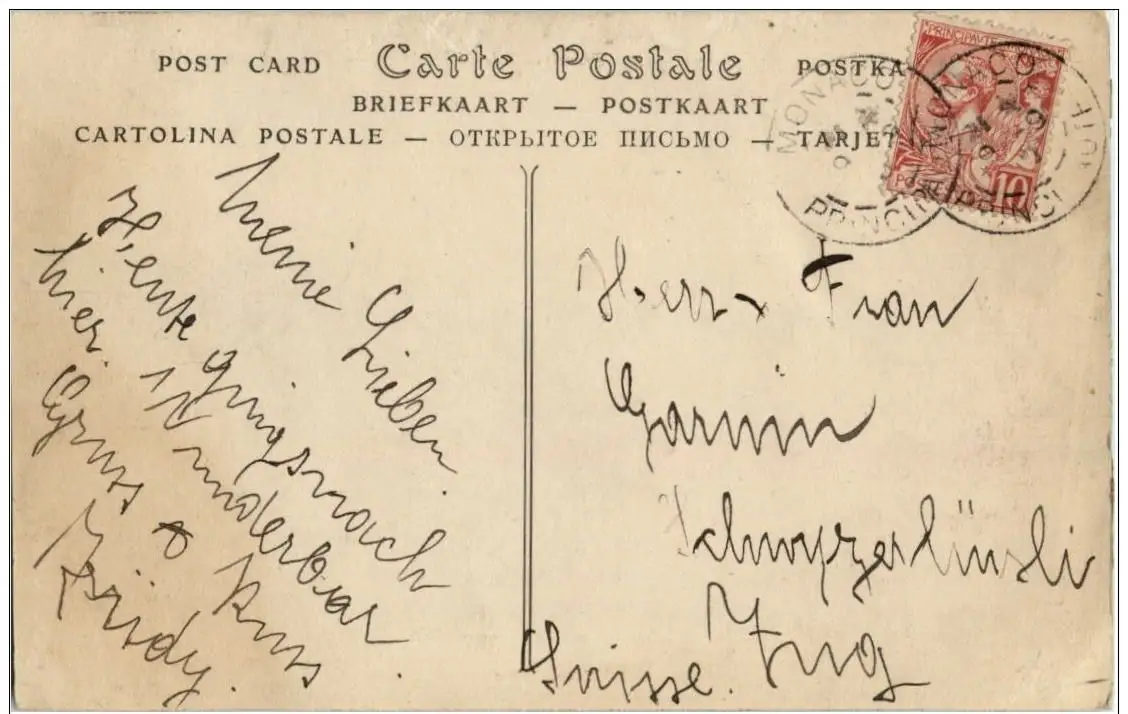 POST CARD Carte Postale POSTKA
BRIEFKAART — POSTKAART
CARTOLINA POSTALE — ОТКРЫТОЕ ПИСЬМО — TARJET
MONACO
PRINCI
MONACO
PRINCI
10
Meine Lieben.
Heute gings nach
hier. Wunderbar.
Gruss & Kuss
Herr & Frau
Garnin
Schwyzerhüusli
Zug
Suisse.